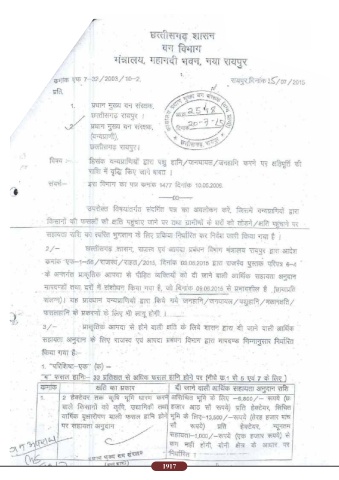 छत्तीसगढ़ शासन
वन विभाग
मंत्रालय, महानदी भवन, नया रायपुर
क्रमांक एफ 7-32/2003/10-2, रायपुर,दिनांक 15/07/2015
प्रति,
1. प्रधान मुख्य वन संरक्षक,
छत्तीसगढ़ रायपुर ।
2. प्रधान मुख्य वन संरक्षक,
(वन्यप्राणी),
छत्तीसगढ़,रायपुर।
2548
20-7-15
विषय :- हिंसक वन्यप्राणियों द्वारा पशु हानि/जनघायल/जनहानि करने पर क्षतिपूर्ति की
राशि में वृद्धि किए जाने बाबत् ।
संदर्भ:- इस विभाग का पत्र क्रमांक 1477 दिनांक 10.05.2005.
---00---
उपरोक्त विषयांतर्गत संदर्भित पत्र का अवलोकन करें, जिसमें वन्यप्राणियों द्वारा
किसानों की फसलों को क्षति पहुंचाए जाने पर तथा ग्रामीणों के घरों को तोड़ने/क्षति पहुंचाने पर
सहायता राशि का त्वरित भुगतान के लिए प्रक्रिया निर्धारित कर निर्देश जारी किया गया है ।
2/- छत्तीसगढ़ शासन, राजस्व एवं आपदा प्रबंधन विभाग मंत्रालय रायपुर द्वारा आदेश
दिनांक 09.06.2015 द्वारा राजस्व पुस्तक परिपत्र 6-4
के अन्तर्गत प्राकृतिक आपदा से पीड़ित व्यक्तियों को दी जाने वाली आर्थिक सहायता अनुदान
मापदण्डों तथा दरों में संशोधन किया गया है, जो दिनांक 09.06.2015 से प्रभावशील है (छायाप्रति
संलग्न)। यह प्रावधान वन्यप्राणियों द्वारा किये गये जनहानि/जनघायल/पशुहानि/मकानहानि/
फसलहानि के प्रकरणों के लिए भी लागू होंगी ।
3/- प्राकृतिक आपदा से होने वाली क्षति के लिये शासन द्वारा दी जाने वाली आर्थिक
सहायता अनुदान के लिए राजस्व एवं आपदा प्रबंधन विभाग द्वारा मापदण्ड निम्नानुसार निर्धारित
किया गया है:-
1. "परिशिष्ट-एक" (क) -
"क" फसल हानि:- 33 प्रतिशत से अधिक फसल हानि होने पर (नीचे क्र.1 से 5 एवं 7 के लिए)
क्रमांक क्षति का प्रकार दी जाने वाली आर्थिक सहायता अनुदान राशि
1. 2 हेक्टेयर तक कृषि भूमि धारण करने वाले किसानों को कृषि, उद्यानिकी तथा वार्षिक वृक्षारोपण वाली फसल हानि होने पर सहायता अनुदान
असिंचित भूमि के लिए -6,800/- रूपये (छः हजार आठ सौ रूपये) प्रति हेक्टेयर, सिंचित भूमि के लिए-13,500/-रूपये (तेरह हजार पांच सौ रूपये) प्रति हेक्टेयर. न्यूनतम सहायता-1,000/-रूपये (एक हजार रूपये) से कम नहीं होगी, बोनी क्षेत्र के आधार पर निर्धारित ।
1917